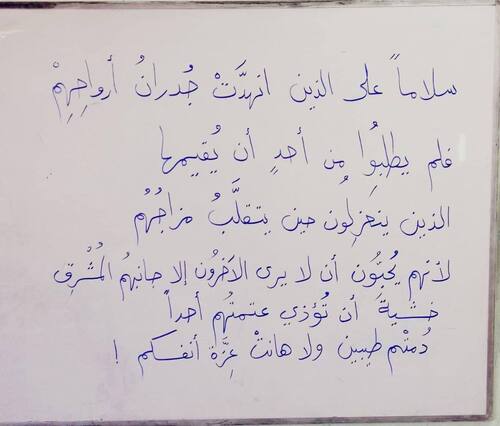 سلاماً على الذين انهدَّتْ جُدرانُ أرواحِهِمْ
فلم يطلبُوا مِن أحدٍ أن يُقيمها
الذين ينعزِلُون حين يتقلَّبُ مزاجُهُم
لأنهم يُحبُّون أن لا يرى الآخرُون إلا جانبهُم المُشْرِق
خشيةَ أن تُؤذي عتمتُهُم أحداً
دُمتْم طيبين ولا هانتْ عِزَّة أنفسكم !